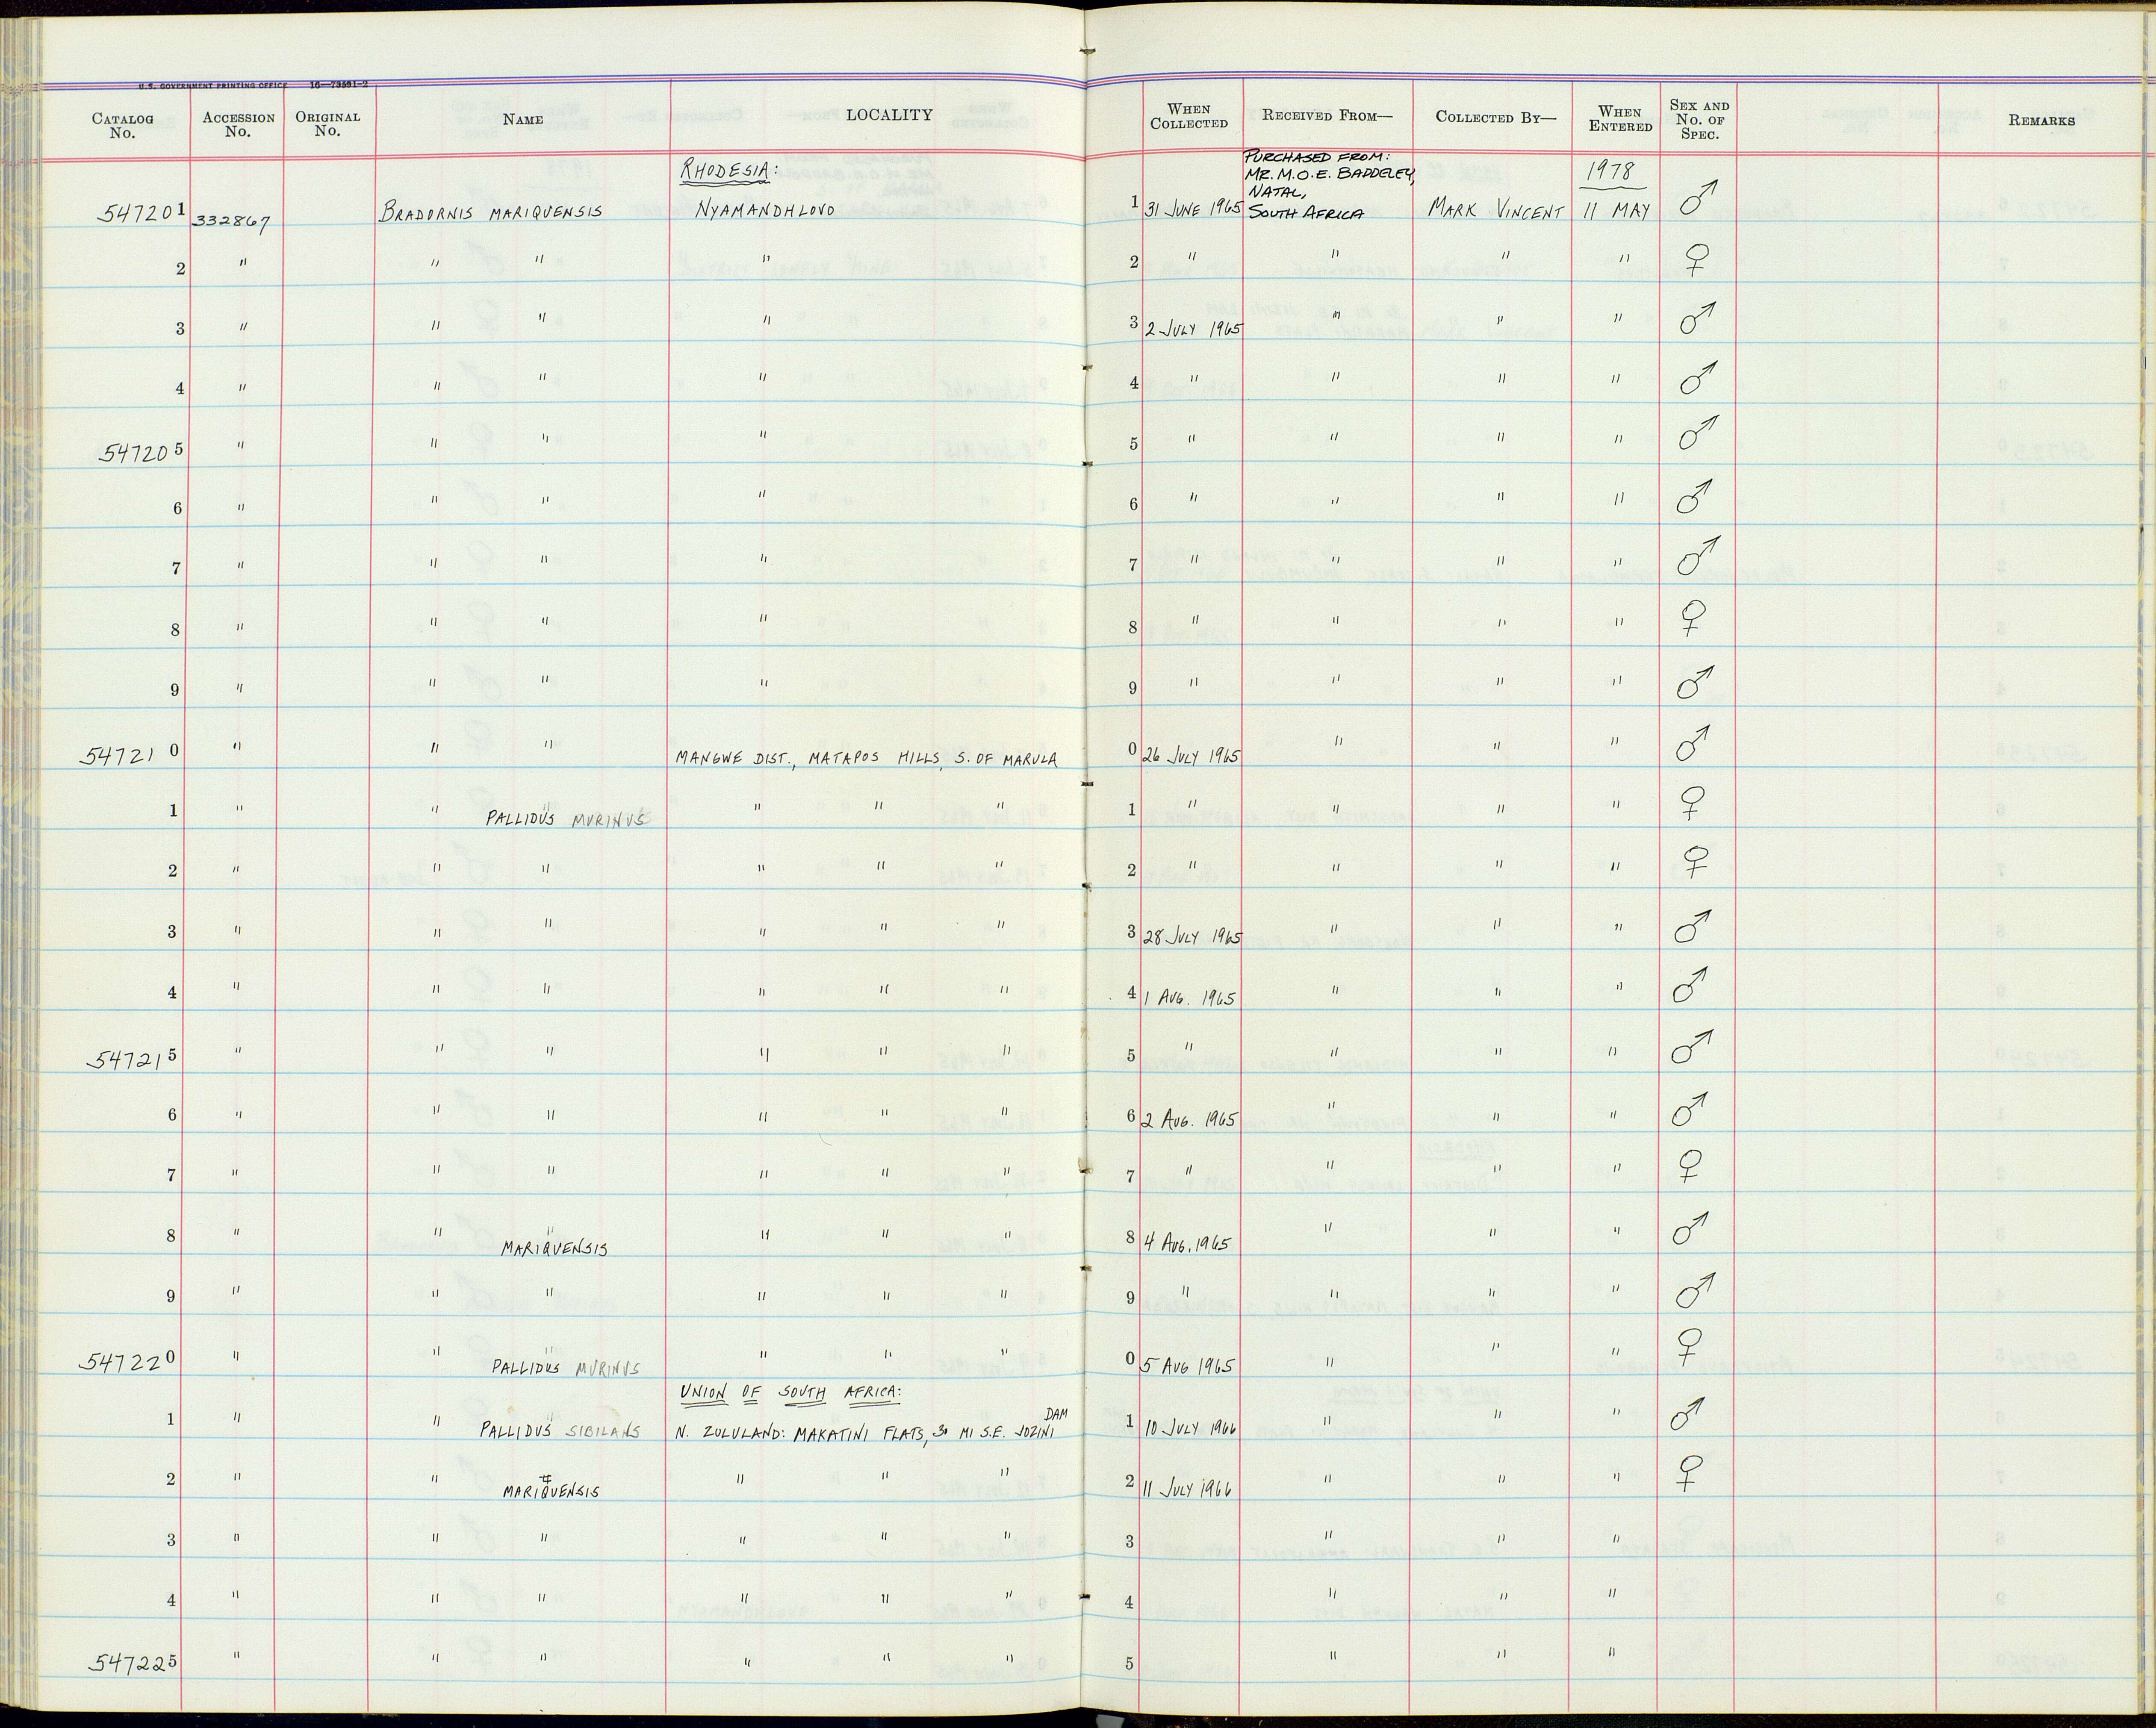 U.S. GOVERNMENT PRINTING OFFICE 16—73591-2
CATALOG No. ACCESSION No. ORIGINAL No. NAME LOCALITY WHEN COLLECTED RECEIVED FROM— COLLECTED BY— WHEN ENTERED SEX AND No. OF SPEC. REMARKS
RHODESIA: PURCHASED FROM: MR. M.O.E. BADDELEY, NATAL, SOUTH AFRICA 1978
547201 332867 BRADORNIS MARIQUENSIS NYAMANDHLOVO 1 31 JUNE 1965 MARK VINCENT 11 MAY ♂
2 " " " " 2 " " " " ♀
3 " " " " 3 2 JULY 1965 " " " ♂
4 " " " " 4 " " " " ♂
547205 " " " " 5 " " " " ♂
6 " " " " 6 " " " " ♂
7 " " " " 7 " " " " ♂
8 " " " " 8 " " " " ♀
9 " " " " 9 " " " " ♂
547210 " " " MANGWE DIST., MATAPOS HILLS, S. OF MARULA 0 26 JULY 1965 " " " ♂
1 " " " PALLIDUS MURINUS " " " 1 " " " " ♀
2 " " " " " " 2 " " " " ♀
3 " " " " " " 3 28 JULY 1965 " " " ♂
4 " " " " " " 4 1 AUG. 1965 " " " ♂
547215 " " " " " " 5 " " " " ♂
6 " " " " " " 6 2 AUG. 1965 " " " ♂
7 " " " " " " 7 " " " " ♀
8 " " " MARIQUENSIS " " " 8 4 AUG. 1965 " " " ♂
9 " " " " " " 9 " " " " ♂
547220 " " " PALLIDUS MURINUS " " " 0 5 AUG 1965 " " " ♀
UNION OF SOUTH AFRICA:
1 " " " PALLIDUS SIBILANS N. ZULULAND: MAKATINI FLATS, 30 MI S.E. JOZINI DAM 1 10 JULY 1966 " " " ♂
2 " " " MARIQUENSIS " " " 2 11 JULY 1966 " " " ♀
3 " " " " " " 3 " " "
4 " " " " " " 4 " " "
547225 " " " " " " 5 " " "